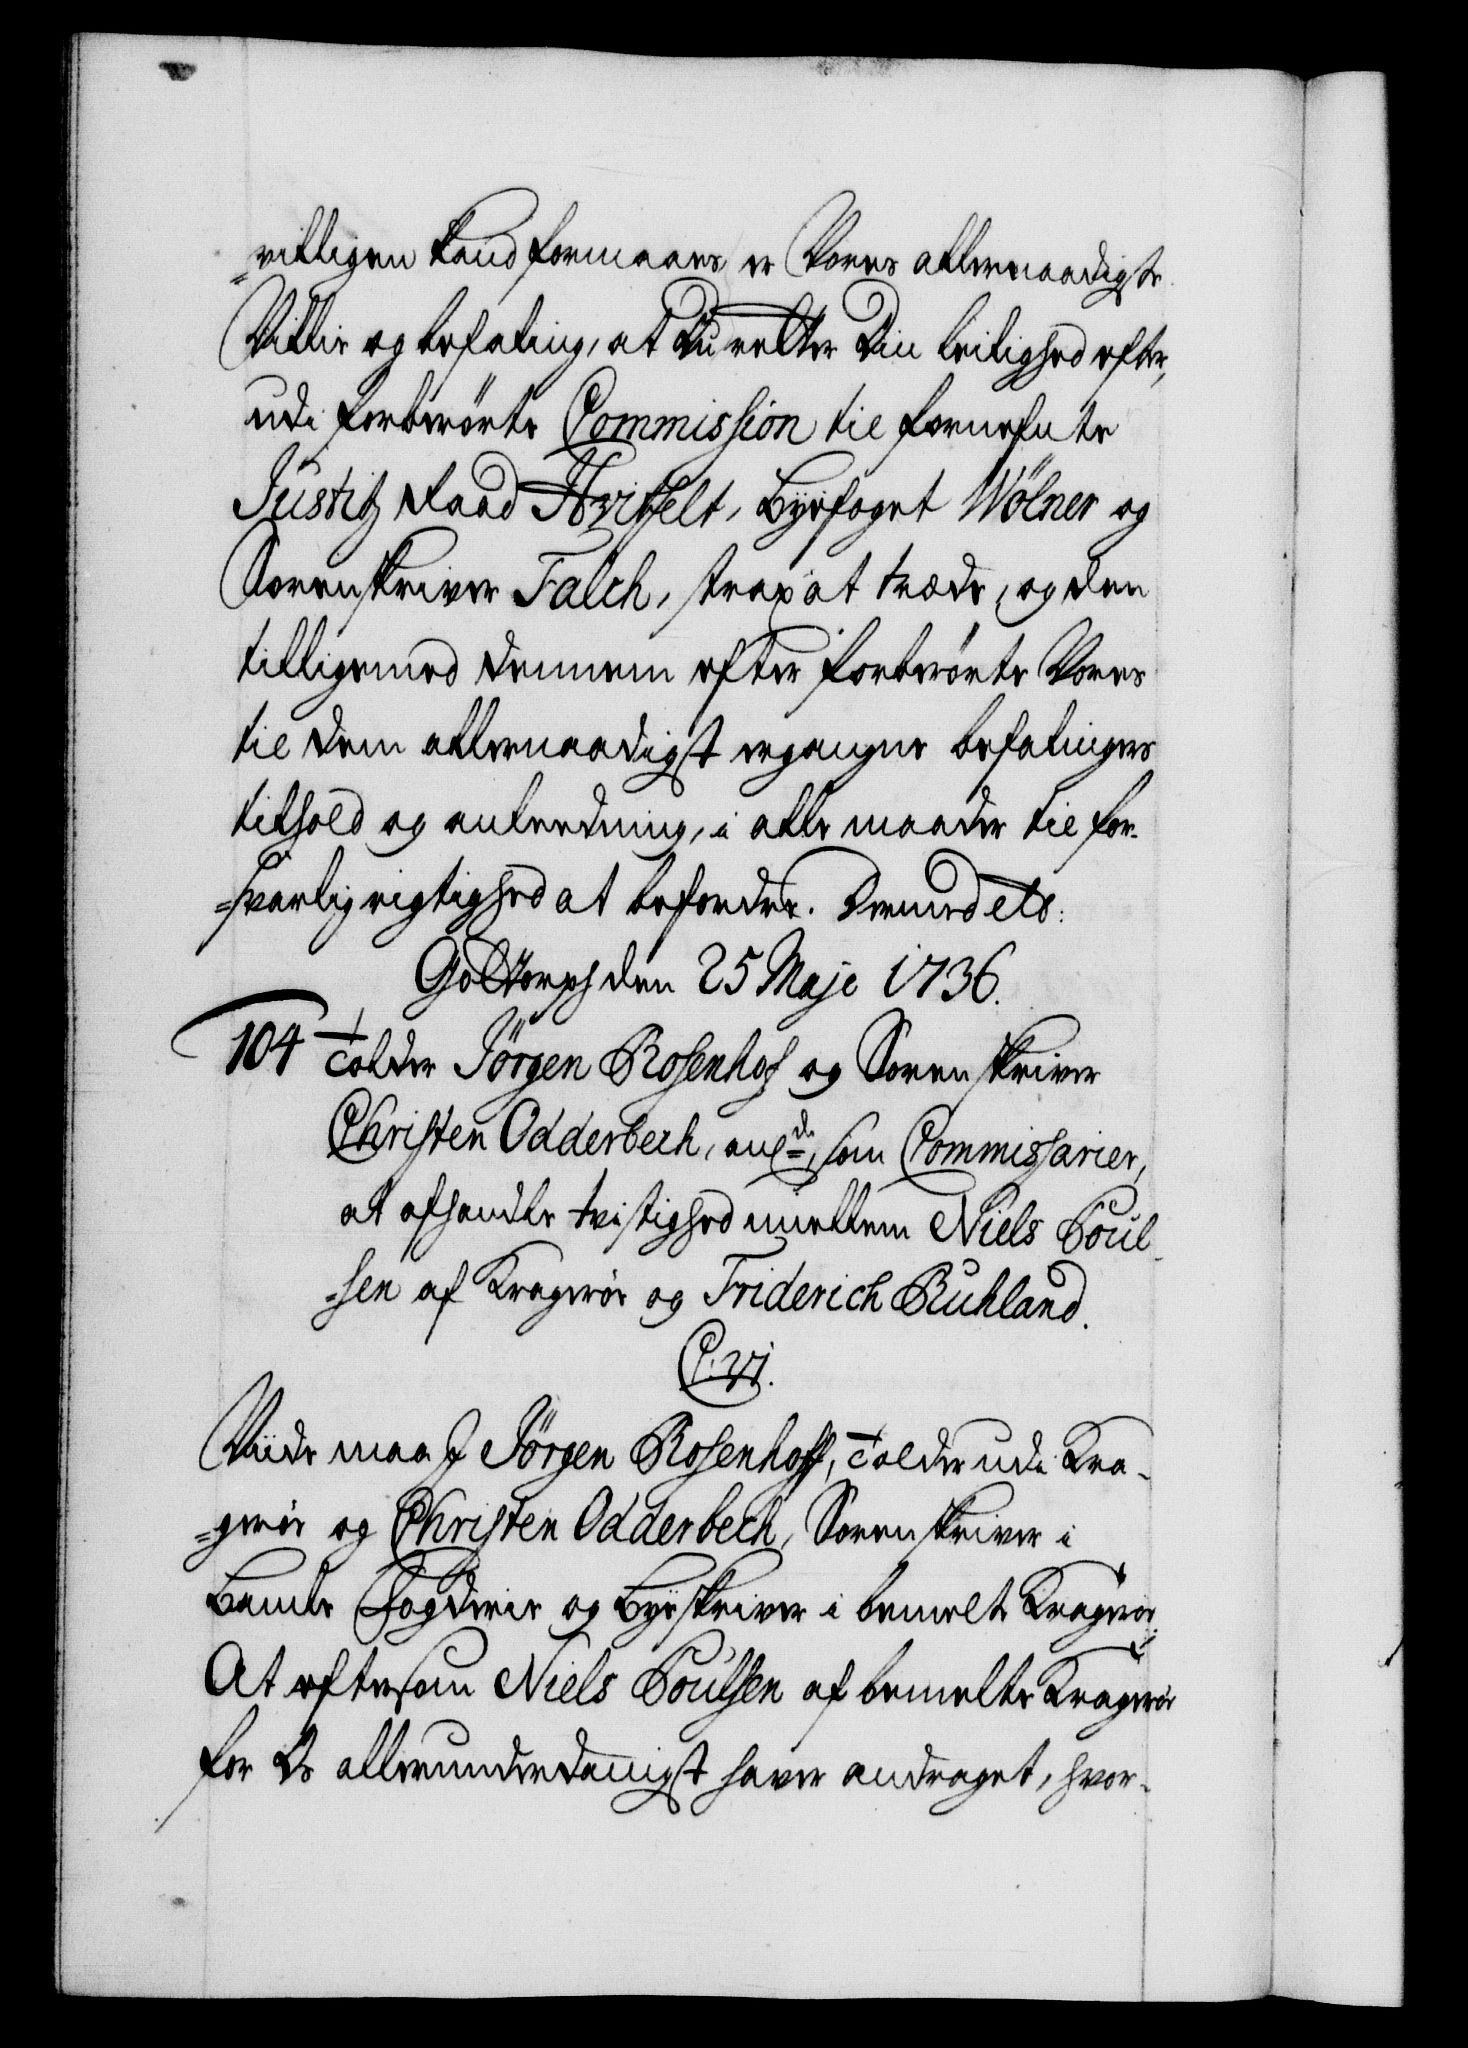 =villigen Haand formaaes, er Vores allernaadigste
Villie og befaling, at Du retter Din leilighed efter,
udi forberørte Commission til fornefnte
Justitz Raad Hvitfelt, Byefoget Wölner og
Sorenskriver Falch, strax at træde, og den
tilligemed dennem efter forberørte Vores
til dem allernaadigst ergangne befalinger
tilhold og anleedning, i alle maader til for-
=svarlig rigtighed at befordre. Dermed etc:
Gottorph den 25 Maji 1736.
104 Tolder Jörgen Rosenhof og Sorenskriver
Christen Odderbech, anl:de som Commissarier,
at afhandle tvistighed imellem Niels Poul-
=sen af Kragerøe og Friderich Ruhland.
C. VI.
Viide maa I Jörgen Rosenhoff, Tolder udi Kra-
=gerøe og Christen Odderbech, Sorenskriver i
Bamble Fogderie og Byeskriver i bemelte Kragerøe.
At eftersom Niels Poulsen af bemelte Kragerøe
for Os allerunderdanigst haver andraget, hvor-